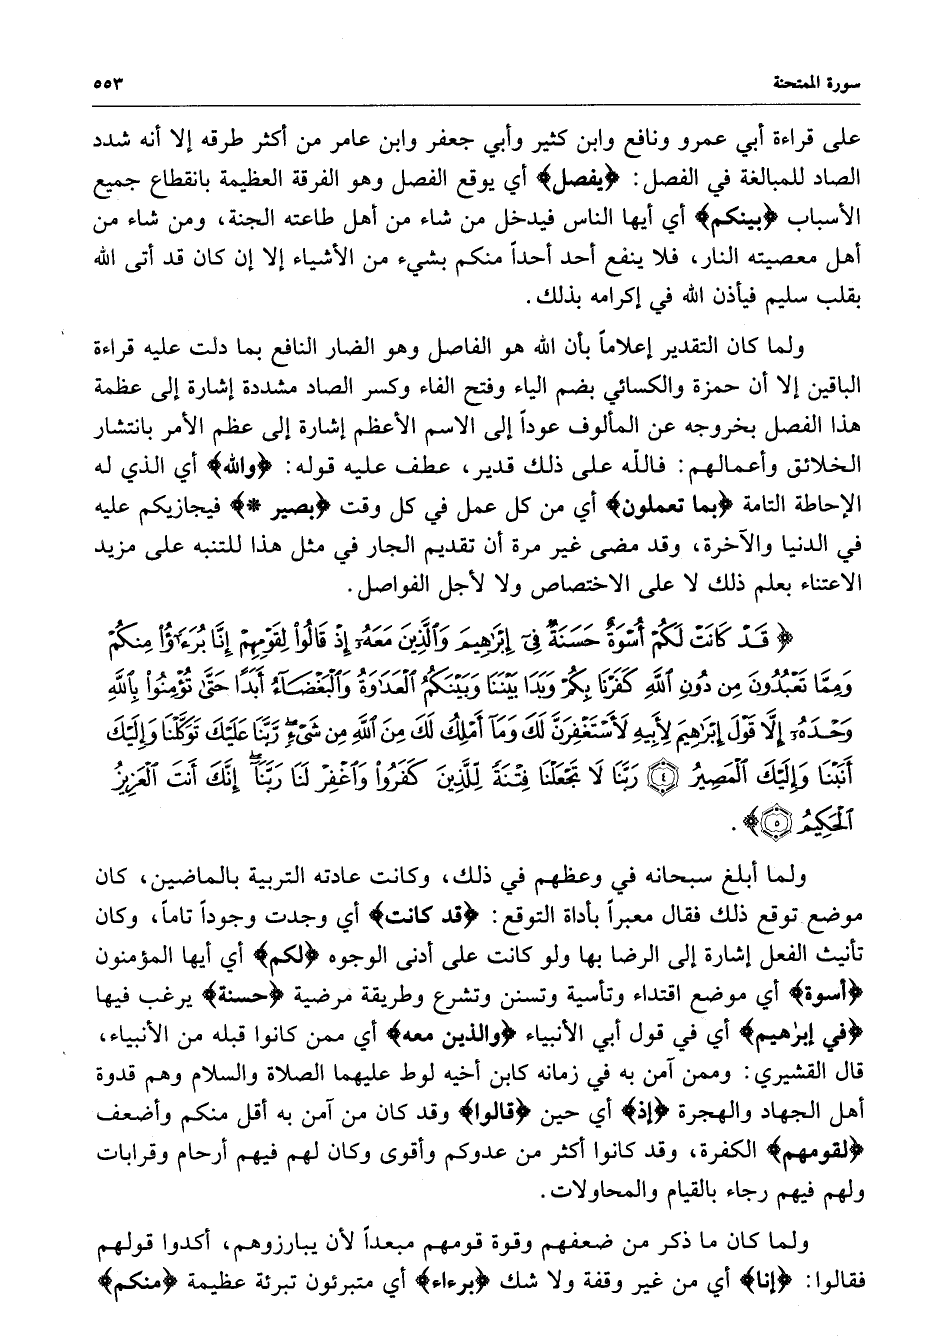 سورة الممتحنة ٥٥٣
على قراءة أبي عمرو ونافع وابن كثير وأبي جعفر وابن عامر من أكثر طرقه إلا أنه شدد
الصاد للمبالغة في الفصل: ﴿يفصل﴾ أي يوقع الفصل وهو الفرقة العظيمة بانقطاع جميع
الأسباب ﴿بينكم﴾ أي أيها الناس فيدخل من شاء من أهل طاعته الجنة، ومن شاء من
أهل معصيته النار، فلا ينفع أحد أحداً منكم بشيء من الأشياء إلا إن كان قد أتى الله
بقلب سليم فيأذن الله في إكرامه بذلك.
ولما كان التقدير إعلاماً بأن الله هو الفاصل وهو الضار النافع بما دلت عليه قراءة
الباقين إلا أن حمزة والكسائي بضم الياء وفتح الفاء وكسر الصاد مشددة إشارة إلى عظمة
هذا الفصل بخروجه عن المألوف عوداً إلى الاسم الأعظم إشارة إلى عظم الأمر بانتشار
الخلائق وأعمالهم: فاللّه على ذلك قدير، عطف عليه قوله: ﴿والله﴾ أي الذي له
الإحاطة التامة ﴿بما تعملون﴾ أي من كل عمل في كل وقت ﴿بصير *﴾ فيجازيكم عليه
في الدنيا والآخرة، وقد مضى غير مرة أن تقديم الجار في مثل هذا للتنبه على مزيد
الاعتناء بعلم ذلك لا على الاختصاص ولا لأجل الفواصل.
﴿ قَدْ كَانَتْ لَكُمْ أُسْوَةٌ حَسَنَةٌ فِىٓ إِبْرَٰهِيمَ وَٱلَّذِينَ مَعَهُۥٓ إِذْ قَالُوا۟ لِقَوْمِهِمْ إِنَّا بُرَءَٰٓؤُا۟ مِنكُمْ
وَمِمَّا تَعْبُدُونَ مِن دُونِ ٱللَّهِ كَفَرْنَا بِكُمْ وَبَدَا بَيْنَنَا وَبَيْنَكُمُ ٱلْعَدَٰوَةُ وَٱلْبَغْضَآءُ أَبَدًا حَتَّىٰ تُؤْمِنُوا۟ بِٱللَّهِ
وَحْدَهُۥٓ إِلَّا قَوْلَ إِبْرَٰهِيمَ لِأَبِيهِ لَأَسْتَغْفِرَنَّ لَكَ وَمَآ أَمْلِكُ لَكَ مِنَ ٱللَّهِ مِن شَىْءٍۖ رَّبَّنَا عَلَيْكَ تَوَكَّلْنَا وَإِلَيْكَ
أَنَبْنَا وَإِلَيْكَ ٱلْمَصِيرُ ٤ رَبَّنَا لَا تَجْعَلْنَا فِتْنَةً لِّلَّذِينَ كَفَرُوا۟ وَٱغْفِرْ لَنَا رَبَّنَآۖ إِنَّكَ أَنتَ ٱلْعَزِيزُ
ٱلْحَكِيمُ ٥﴾.
ولما أبلغ سبحانه في وعظهم في ذلك، وكانت عادته التربية بالماضين، كان
موضع توقع ذلك فقال معبراً بأداة التوقع: ﴿قد كانت﴾ أي وجدت وجوداً تاماً، وكان
تأنيث الفعل إشارة إلى الرضا بها ولو كانت على أدنى الوجوه ﴿لكم﴾ أي أيها المؤمنون
﴿أسوة﴾ أي موضع اقتداء وتأسية وتسنن وتشرع وطريقة مرضية ﴿حسنة﴾ يرغب فيها
﴿في إبرٰهيم﴾ أي في قول أبي الأنبياء ﴿والذين معه﴾ أي ممن كانوا قبله من الأنبياء،
قال القشيري: وممن آمن به في زمانه كابن أخيه لوط عليهما الصلاة والسلام وهم قدوة
أهل الجهاد والهجرة ﴿إذ﴾ أي حين ﴿قالوا﴾ وقد كان من آمن به أقل منكم وأضعف
﴿لقومهم﴾ الكفرة، وقد كانوا أكثر من عدوكم وأقوى وكان لهم فيهم أرحام وقرابات
ولهم فيهم رجاء بالقيام والمحاولات.
ولما كان ما ذكر من ضعفهم وقوة قومهم مبعداً لأن يبارزوهم، أكدوا قولهم
فقالوا: ﴿إنا﴾ أي من غير وقفة ولا شك ﴿برءاء﴾ أي متبرئون تبرئة عظيمة ﴿منكم﴾